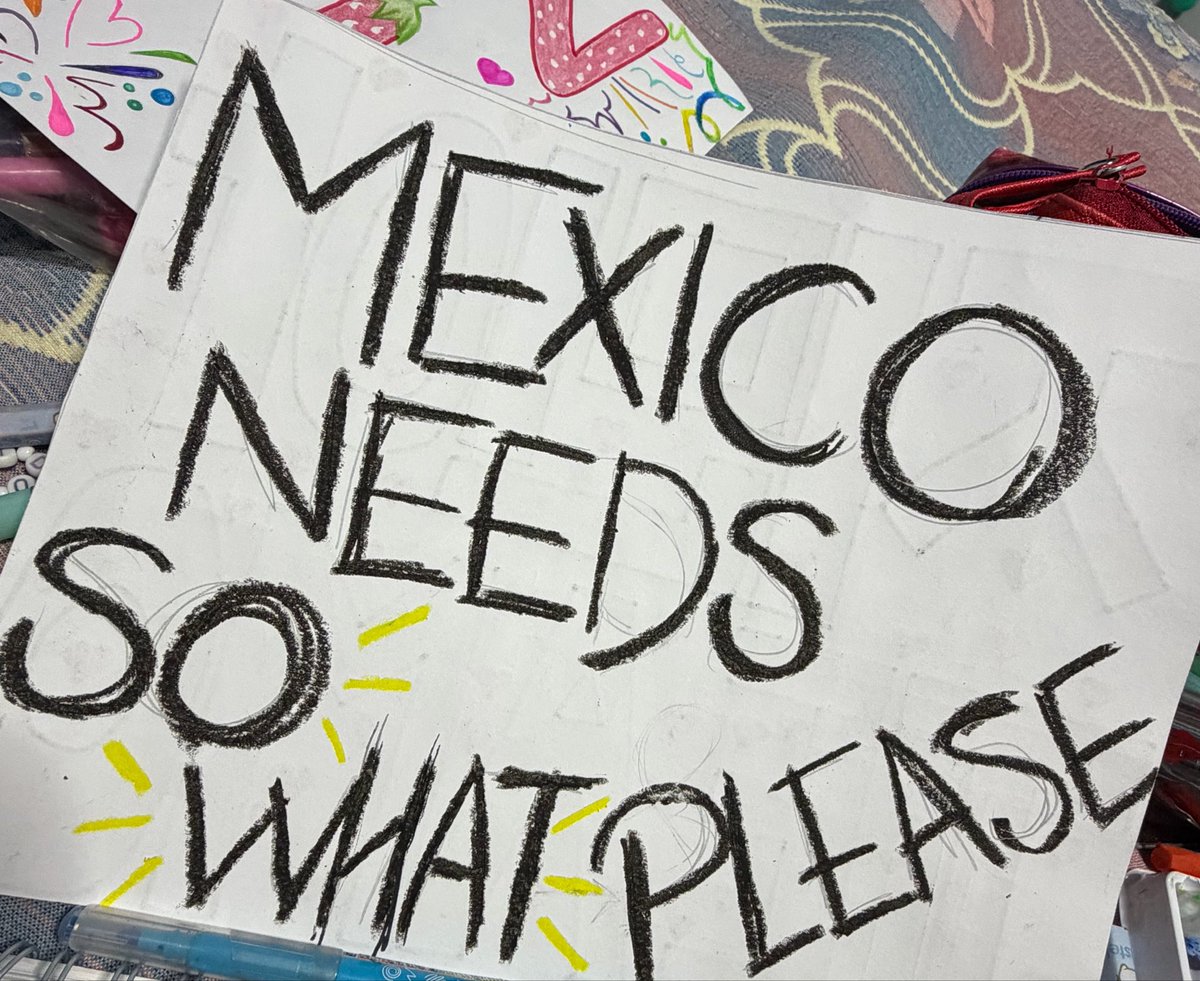 MEXICO
NEEDS
SO
WHAT PLEASE